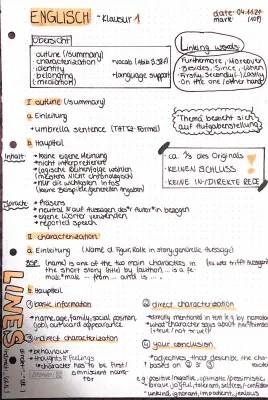 ENGLISCH - Klausur 1
date: 04.11.21
mark: (10P)
Übersicht
· outline (/summary)
· characterization
· identity
· belonging
(· mediation)
· language support
Linking words:
Furthermore, Moreover
Besides, Since, Given
Firstly, Secondly(...), Lastly
On the one/other hand
I outline (/summary)
a. Einleitung
→ umbrella sentence (TATTE-Formel)
Thema bezieht sich
auf Aufgabenstellung
b. Hauptteil
Inhalt:
→ keine eigene Meinung
→ nicht interpretieren
→ logische Reihenfolge
→ nur die wichtigsten Infos
(keine Beispiele, genaren Angaben)
· ca. 1/3 des Originals
· KEINEN SCHLUSS
· KEINE IN-/DIREKTE REDE
Sprache:
→ Präsens
→ neutral & auf Aussagen des*r Autor*in bezogen
→ eigene Wörter verwenden
→ reported speech
II characterization
a. Einleitung (Name d. Figur, Rolle in story, generelle Aussage)
BSP. (name) is one of the two main characters in
the short story (title) by (author). ... is a fe
male*male ... from ... and is ...
b. Hauptteil
① basic information
→ name, age, family, social position,
(job), outward appearance
② direct characterization
→ directly mentioned in text e.g. by narrator
→ what character says about him/herself
(true/not true?)
③ indirect characterization
→ behaviour
→ thoughts & feelings
→ character has to be first/
omniscient narra-
tor
④ your conclusion
→ adjectives that describe the cha.
based on ② & ③
e.g. positive/negative, optimistic/pessimistic,
brave, joyful, tolerant, selfless/
unkind, ignorant, impatient, jealous
LINES